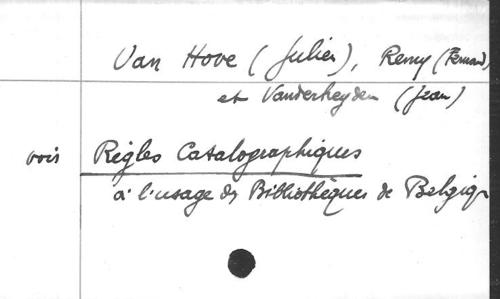 Van Hove (Julien), Remy (Fernand)
et Vanderheyden (Jean)
voir Règles Catalographiques
à l'usage des Bibliothèques de Belgiq